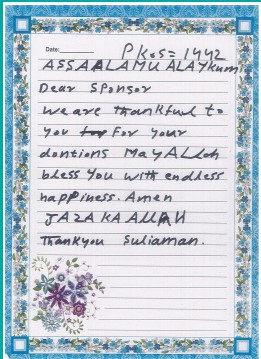 Date:
PK.S= 1442
ASSAALAMU ALAYKUM
Dear Sponsor
we are thankful to
you for your
dontions May ALLah
bless You with endless
happiness. Amen
JAZA KA ALLAH
Thankyou Suliaman.